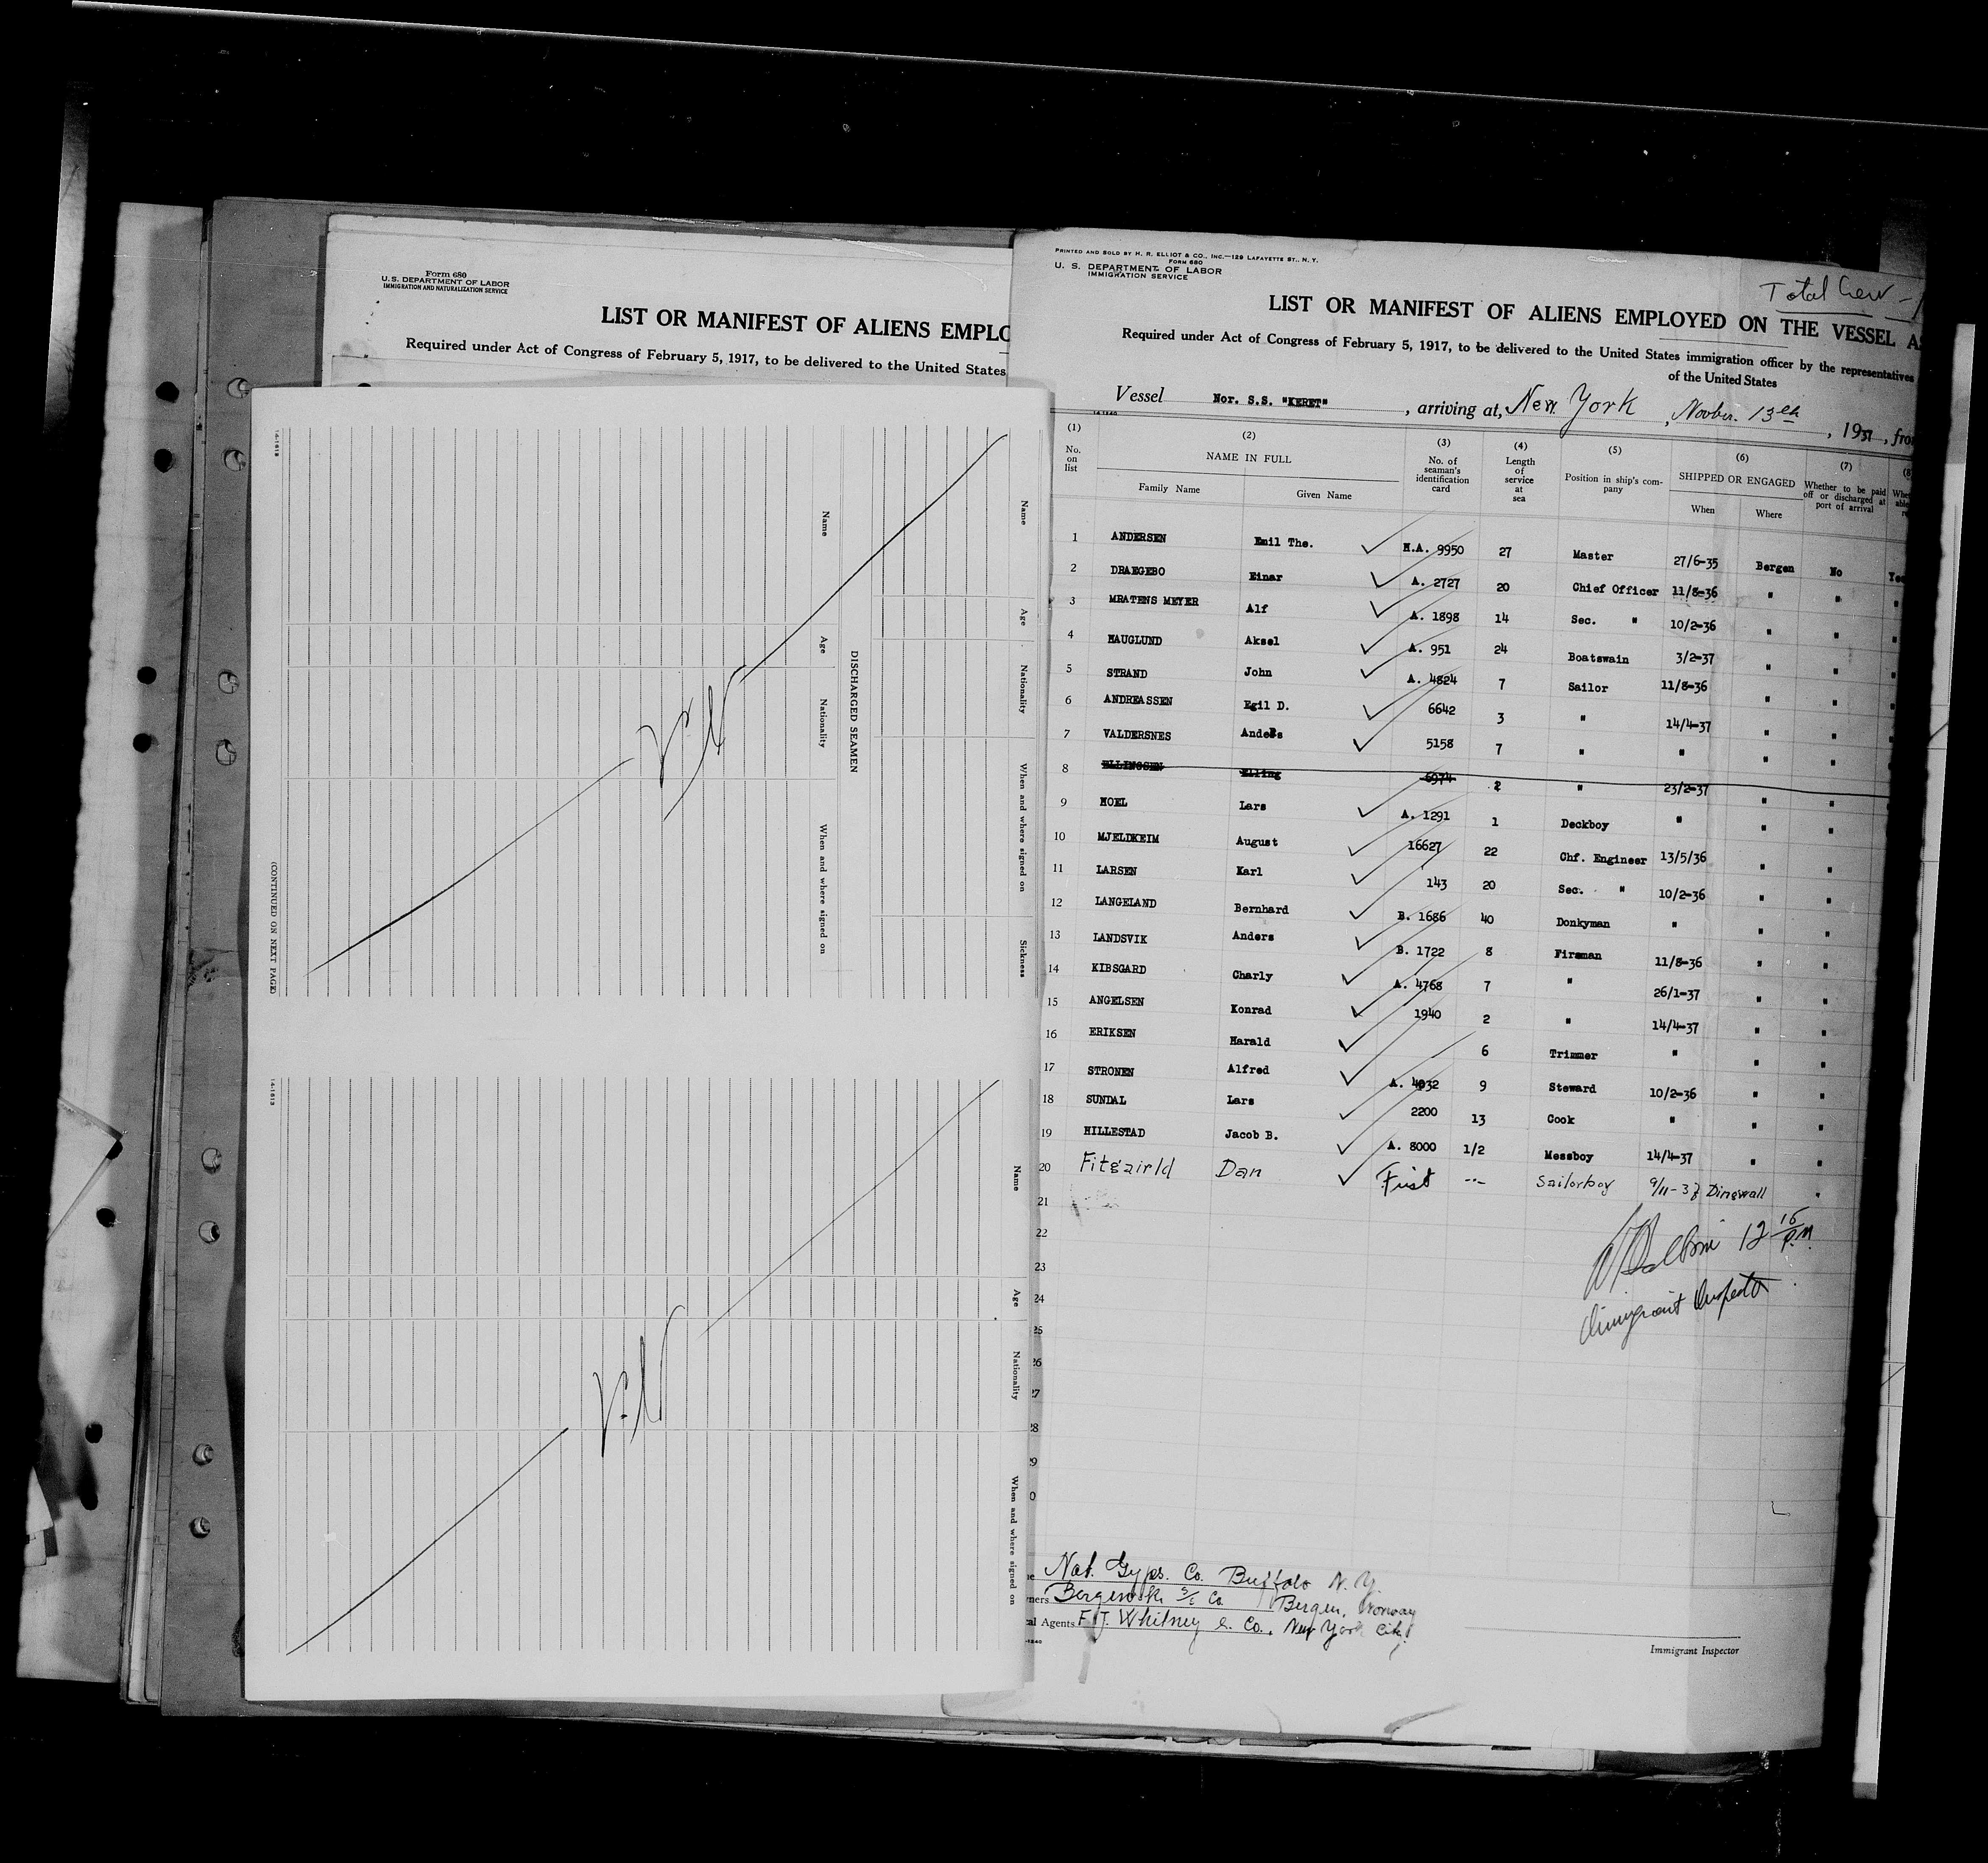 Form 680
U.S. DEPARTMENT OF LABOR
IMMIGRATION AND NATURALIZATION SERVICE
LIST OR MANIFEST OF ALIENS EMPLO
Required under Act of Congress of February 5, 1917, to be delivered to the United States
14-1613
Name Age Nationality When and where signed on Sickness
DISCHARGED SEAMEN
Name Age Nationality When and where signed on
(CONTINUED ON NEXT PAGE)
14-1613
Name Age Nationality When and where signed on
PRINTED AND SOLD BY H. R. ELLIOT & CO., INC.—129 LAFAYETTE ST., N. Y.
FORM 680
U. S. DEPARTMENT OF LABOR
IMMIGRATION SERVICE
Total Crew -
LIST OR MANIFEST OF ALIENS EMPLOYED ON THE VESSEL A
Required under Act of Congress of February 5, 1917, to be delivered to the United States immigration officer by the representatives
of the United States
Vessel Nor. S.S. "KERET", arriving at, New York, Novber. 13th, 1937, fro
14-1240
(1) (2) (3) (4) (5) (6) (7)
No. on list NAME IN FULL No. of seaman's identification card Length of service at sea Position in ship's company SHIPPED OR ENGAGED Whether to be paid off or discharged at port of arrival
Family Name Given Name When Where
1 ANDERSEN Emil The. H.A. 9950 27 Master 27/6-35 Bergen No Yes
2 DRAEGEBO Einar A. 2727 20 Chief Officer 11/8-36 " " "
3 MRATENS MEYER Alf A. 1898 14 Sec. " 10/2-36 " " "
4 HAUGLUND Aksel A. 951 24 Boatswain 3/2-37 " " "
5 STRAND John A. 4824 7 Sailor 11/8-36 " " "
6 ANDREASSEN Egil D. 6642 3 " 14/4-37 " " "
7 VALDERSNES Anders 5158 7 " " " " "
8 ELLINGSEN Elling 6974 2 " 23/2-37 " "
9 HOEL Lars A. 1291 1 Deckboy " " "
10 MJELDKEIM August 16627 22 Chf. Engineer 13/5/36 " "
11 LARSEN Karl 143 20 Sec. " 10/2-36 " "
12 LANGELAND Bernhard B. 1686 40 Donkyman " " "
13 LANDSVIK Anders B. 1722 8 Fireman 11/8-36 " "
14 KIBSGARD Charly A. 4768 7 " 26/1-37 " "
15 ANGELSEN Konrad 1940 2 " 14/4-37 " "
16 ERIKSEN Harald 6 Trimmer " " "
17 STRONEN Alfred A. 4032 9 Steward 10/2-36 " "
18 SUNDAL Lars 2200 13 Cook " " "
19 HILLESTAD Jacob B. A. 8000 1/2 Messboy 14/4-37 " "
20 Fitgairld Dan First -"- Sailorboy 9/11-37 Dingwall "
21
22
12 15 P.M.
23
24
Immigrant Inspector
25
26
27
28
29
30
Nat. Gyps. Co. Buffalo N.Y.
ners Bergenske S/S Co Bergen, Norway
al Agents F. J. Whitney & Co., New York City
Immigrant Inspector